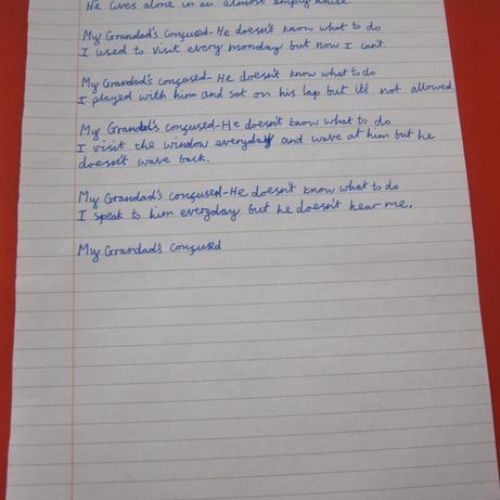 He lives alone in an almost empty house
My Grandad's confused-He doesn't know what to do
I used to visit every monday but now I can't.
My Grandad's confused-He doesn't know what to do
I played with him and sat on his lap but it's not allowed.
My Grandad's confused-He doesn't know what to do
I visit the window everyday and wave at him but he
doesn't wave back.
My Grandad's confused-He doesn't know what to do
I speak to him everyday but he doesn't hear me.
My Grandad's confused